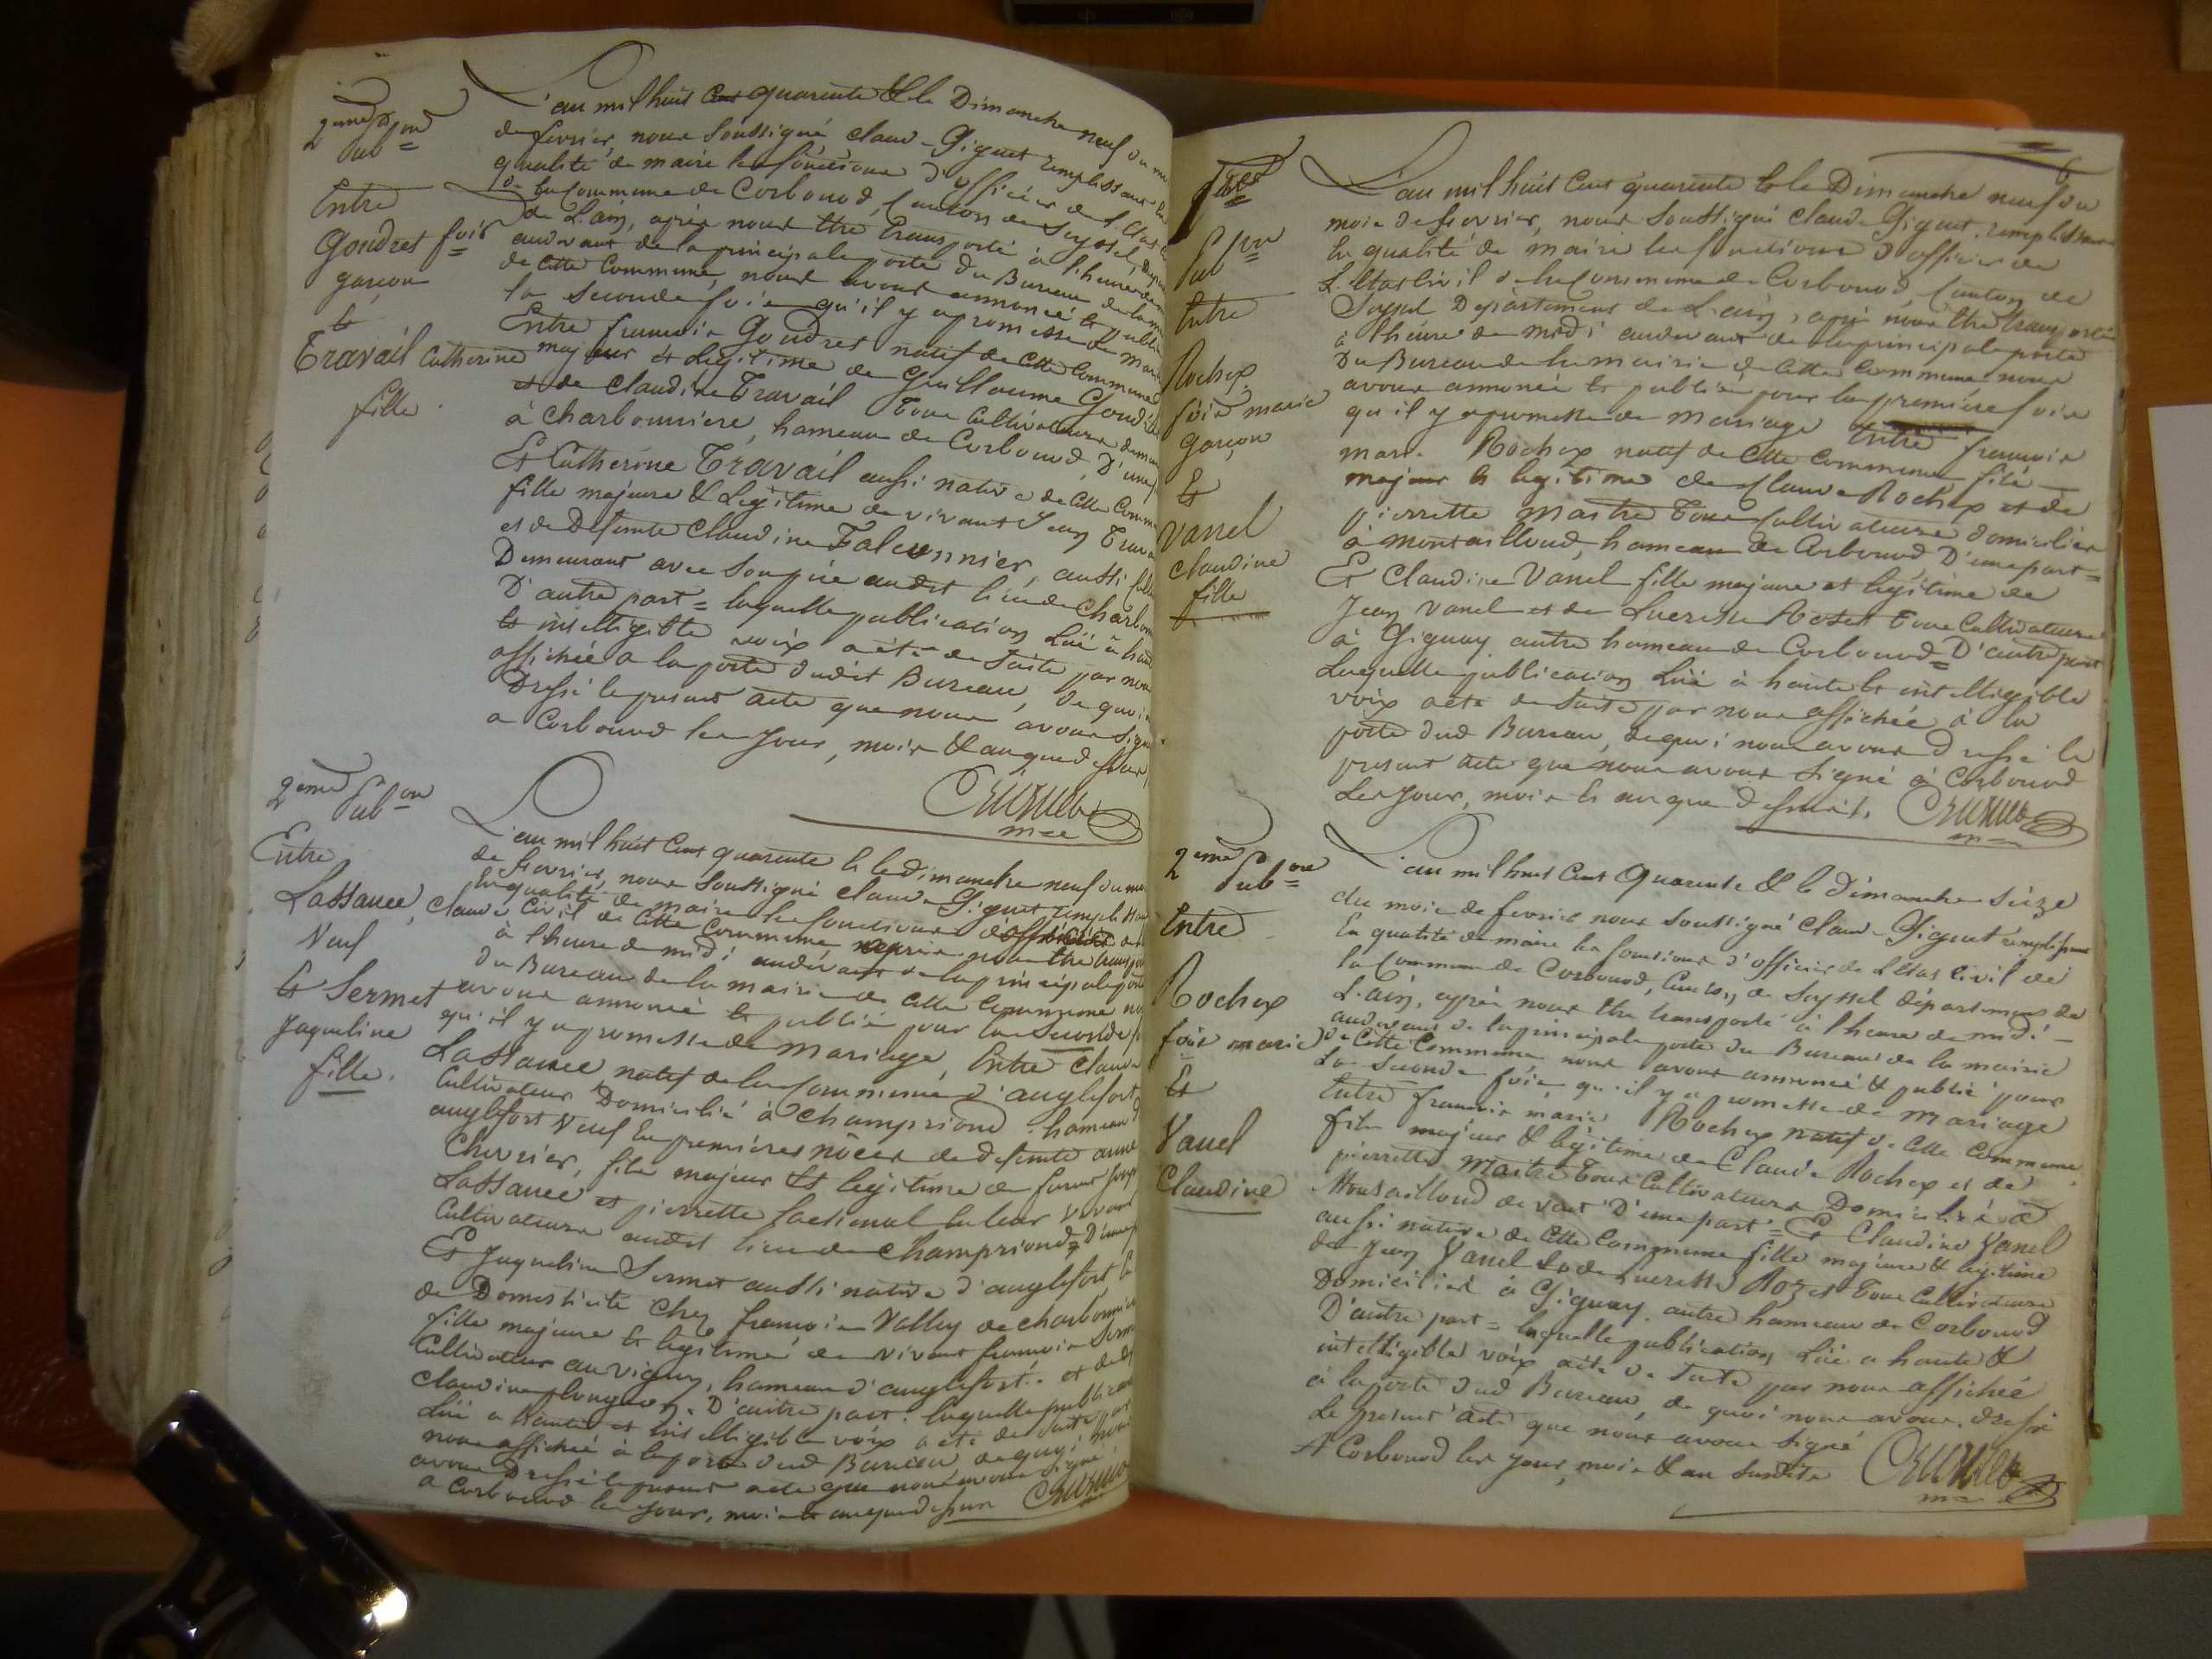 2eme Pubon
Entre
Goudret fois
garçon
&
Travail Catherine
fille
L'an mil huit Cent quarante & le Dimanche neuf du
de fevrier, nous soussigné claude Giguet remplissant
qualité de maire les fonctions d'officier de l'Etat
de la Commune de Corbonod, Canton de Seyssel,
de L'ain, après nous être transporté à l'heure de
audevant de la principale porte du Bureau de la
de Cette Commune, nous avons annoncé & publié
la seconde fois qu'il y a promesse de
Entre françois Goudret natif de Cette Commune
majeur et Legitime de Guillaume
et de Claudine Travail Tous Cultivateurs
à Charbonniere, hameau de Corbonod, D'une
Et Catherine Travail aussi native de Cette
fille majeure & Legitime de vivant Jean
et de Defunte Claudine Falconnier, aussi
Demeurant avec son père audit lieu de
D'autre part = laquelle publication Lüe à
& intelligible voix a été de suite par nous
affichée a la porte dudit Bureau, de quoi
Dressé le present acte que nous avons signé
a Corbonod les jour, mois & an que dessus
2eme Pubon
Entre
Lassauce, Claude
Veuf
& Sermet
Jaqueline
fille.
L'an mil huit Cent quarante & le dimanche neuf du
de fevrier, nous soussigné Claude Giguet
la qualité de maire les fonctions d'officier de
Civil de Cette Commune, après nous être
à l'heure de midi audevant de la principale porte
du Bureau de la mairie de Cette Commune
avons annoncé & publié pour la seconde
qu'il y a promesse de Mariage, Entre Claude
Lassauce natif de la Commune d'anglefort
Cultivateur Domicilié à Champriond hameau
anglefort Veuf En premières nôces de defunte
Chevrier, fils majeur Et legitime de
Lassauce et pierrette
Cultivateurs audit lieu de Champriond,
Et Jaqueline Sermet aussi native d'anglefort
de Domesticité Chez françois Valley de
fille majeure & legitime de vivant françois
Cultivateur au vigny, hameau d'anglefort. et de
Claudine D'autre part. laquelle
Lüe a haute et intelligible voix a été de suite
nous affichée à la porte dud Bureau de quoi
avons Dressé le present acte que nous avons signé
a Corbonod les jour, mois & an que dessus
6
Pubon
Entre
Rochex
fois marie
garçon
&
Vanel
Claudine
fille
L'an mil huit Cent quarante & le Dimanche neuf du
mois de fevrier, nous soussigné Claude Giguet, remplissant
la qualité de maire les fonctions d'officier de
L'Etat Civil de la Commune de Corbonod, Canton de
Seyssel Departement de L'ain, après nous être transporté
à l'heure de midi audevant de la principale porte
Du Bureau de la mairie de Cette Commune nous
avons annoncé & publié pour la première fois
qu'il y a promesse de Mariage Entre françois
marie Rochex natif de Cette Commune, fils
majeur & legitime de Claude Rochex et de
pierrette Maitre Tous Cultivateurs domiciliés
à Montailloud, hameau de Corbonod, D'une part =
Et Claudine Vanel fille majeure et legitime de
Jean Vanel et de Lucresse Roset Tous Cultivateurs
à Gignay autre hameau de Corbonod = D'autre part
Laquelle publication Lüe à haute & intelligible
voix a été de suite par nous affichée à la
porte dud Bureau, de quoi nous avons dressé le
present acte que nous avons signé à Corbonod
Les jour, mois & an que dessus.
2eme Pubon
Entre
Rochex
fois marie
&
Vanel
Claudine
L'an mil huit Cent Quarante & le Dimanche Seize
du mois de fevrier nous soussigné Claude Giguet remplissant
En qualité de maire les fonctions d'officier de L'Etat Civil de
la Commune de Corbonod, Canton de Seyssel département de
L'ain, après nous être transporté à l'heure de midi -
audevant de la principale porte du Bureau de la mairie
de Cette Commune nous avons annoncé & publié pour
La Seconde fois, qu'il y a promesse de Mariage
Entre françois marie Rochex natif de Cette Commune,
fils majeur & legitime de Claude Rochex et de
pierrette Maitre Tous Cultivateurs Domiciliés à
Montailloud D'une part = Et Claudine Vanel
aussi native de Cette Commune fille majeure & legitime
de Jean Vanel & de Lucresse Rozet Tous Cultivateurs
Domiciliés à Gignay autre hameau de Corbonod
D'autre part = laquelle publication Lüe a haute &
intelligible voix a été de suite par nous affichée
à la porte dud Bureau, de quoi nous avons dressé
Le present acte que nous avons signé
A Corbonod les jour, mois & an susdits